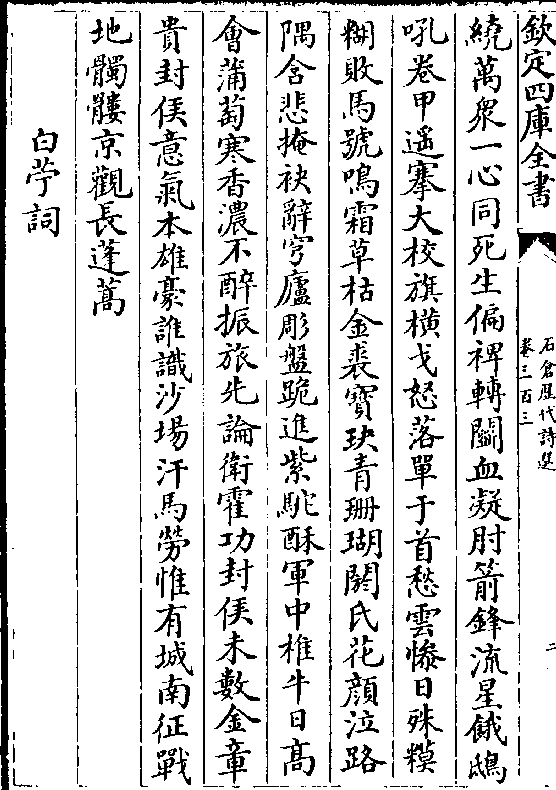 欽定四庫全書
石倉歷代詩選
卷三百三
二
繞萬衆一心同死生偏裨轉鬭血凝肘箭鋒流星餓鴟
吼卷甲遥搴大校旗橫戈怒落單于首愁雲慘日殊糢
糊敗馬號鳴霜草枯金裘寶玦青珊瑚閼氏花顔泣路
隅含悲掩袂辭穹廬彫盤跪進紫駝酥軍中椎牛日高
會蒲萄寒香濃不醉振旅先論衛霍功封侯未數金章
貴封侯意氣本雄豪誰識沙場汗馬勞惟有城南征戰
地髑髏京觀長蓬蒿
白苧詞